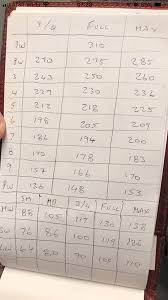 3/4 FULL MAX
DW 310
3W 270 275 285
3 243 250 260
4 229 230 236
5 212 218 225
6 198 205 209
7 186 194 200
8 170 178 183
9 157 166 173
PW 136 148 153
SM MD 3/4 FULL MAX
88 105 117 130 138
SW 76 86 100 119 126
LW 64 80 90 100 110